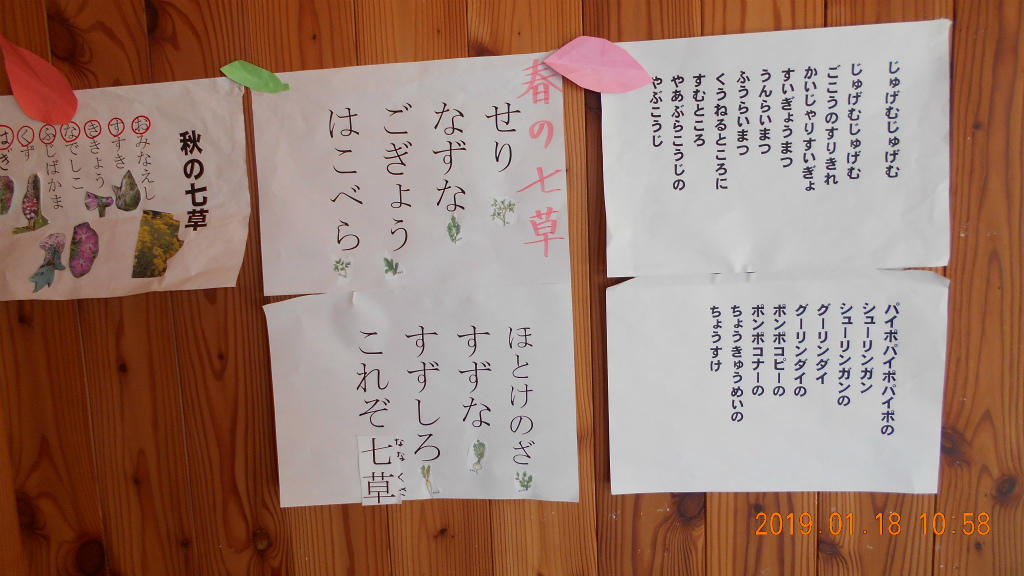 じゅげむじゅげむ
じゅげむじゅげむ
ごこうのすりきれ
かいじゃりすいぎょ
すいぎょうまつ
うんらいまつ
ふうらいまつ
くうねるところに
すむところ
やあぶらこうじの
やぶこうじ
パイポパイポパイポの
シューリンガン
シューリンガンの
グーリンダイ
グーリンダイの
ポンポコピーの
ポンポコナーの
ちょうきゅうめいの
ちょうすけ
春の七草
せり
なずな
ごぎょう
はこべら
ほとけのざ
すずな
すずしろ
これぞ七草
なな くさ
秋の七草
おみなえし
すすき
ききょう
なでしこ
ふじばかま
くず
はぎ
2019.01.18 10:58